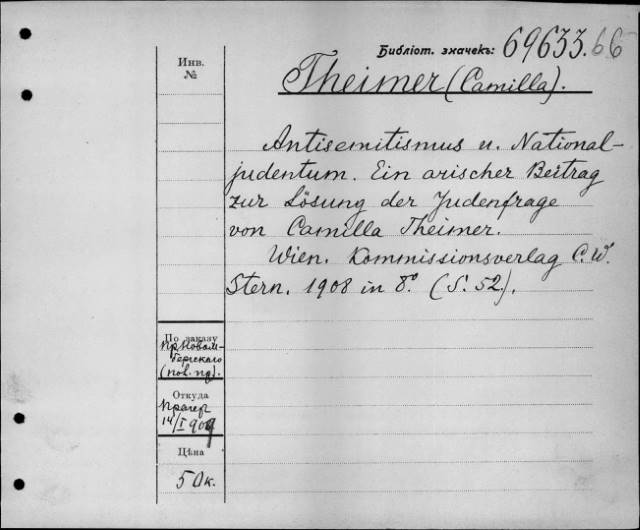 Библіот. значекъ: 69633.66
Инв.
№
Theimer (Camilla).
Antisemitismus u. National-
judentum. Ein arischer Beitrag
zur Lösung der Judenfrage
von Camilla Theimer.
Wien. Kommissionsverlag C. W.
Stern. 1908 in 8.° (S. 52).
По заказу
Откуда
Прагер
14/I 1909
Цѣна
50 к.